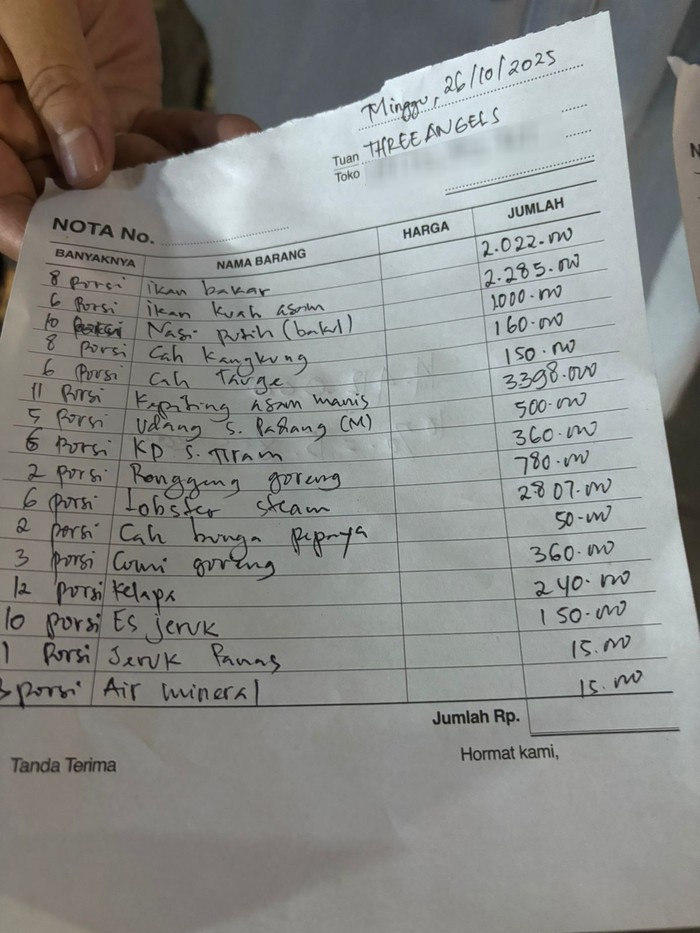 Minggu, 26/10/2025
Tuan THREE ANGELS
Toko
NOTA No.
BANYAKNYA NAMA BARANG HARGA JUMLAH
8 Porsi ikan bakar 2.022.000
6 Porsi ikan kuah asam 2.285.000
10 Nasi putih (bakul) 1000.000
8 Porsi Cah Kangkung 160.000
6 Porsi Cah Tauge 150.000
11 Porsi Kepiting asam manis 3398.000
5 Porsi Udang S. Padang (M) 500.000
6 Porsi KD S. Tiram 360.000
2 porsi Ronggeng goreng 780.000
6 porsi Lobster steam 2807.000
2 porsi Cah bunga pepaya 50.000
3 porsi Cumi goreng 360.000
12 porsi Kelapa 240.000
10 porsi Es jeruk 150.000
1 Porsi Jeruk Panas 15.000
3 porsi Air mineral 15.000
Jumlah Rp.
Tanda Terima Hormat kami,